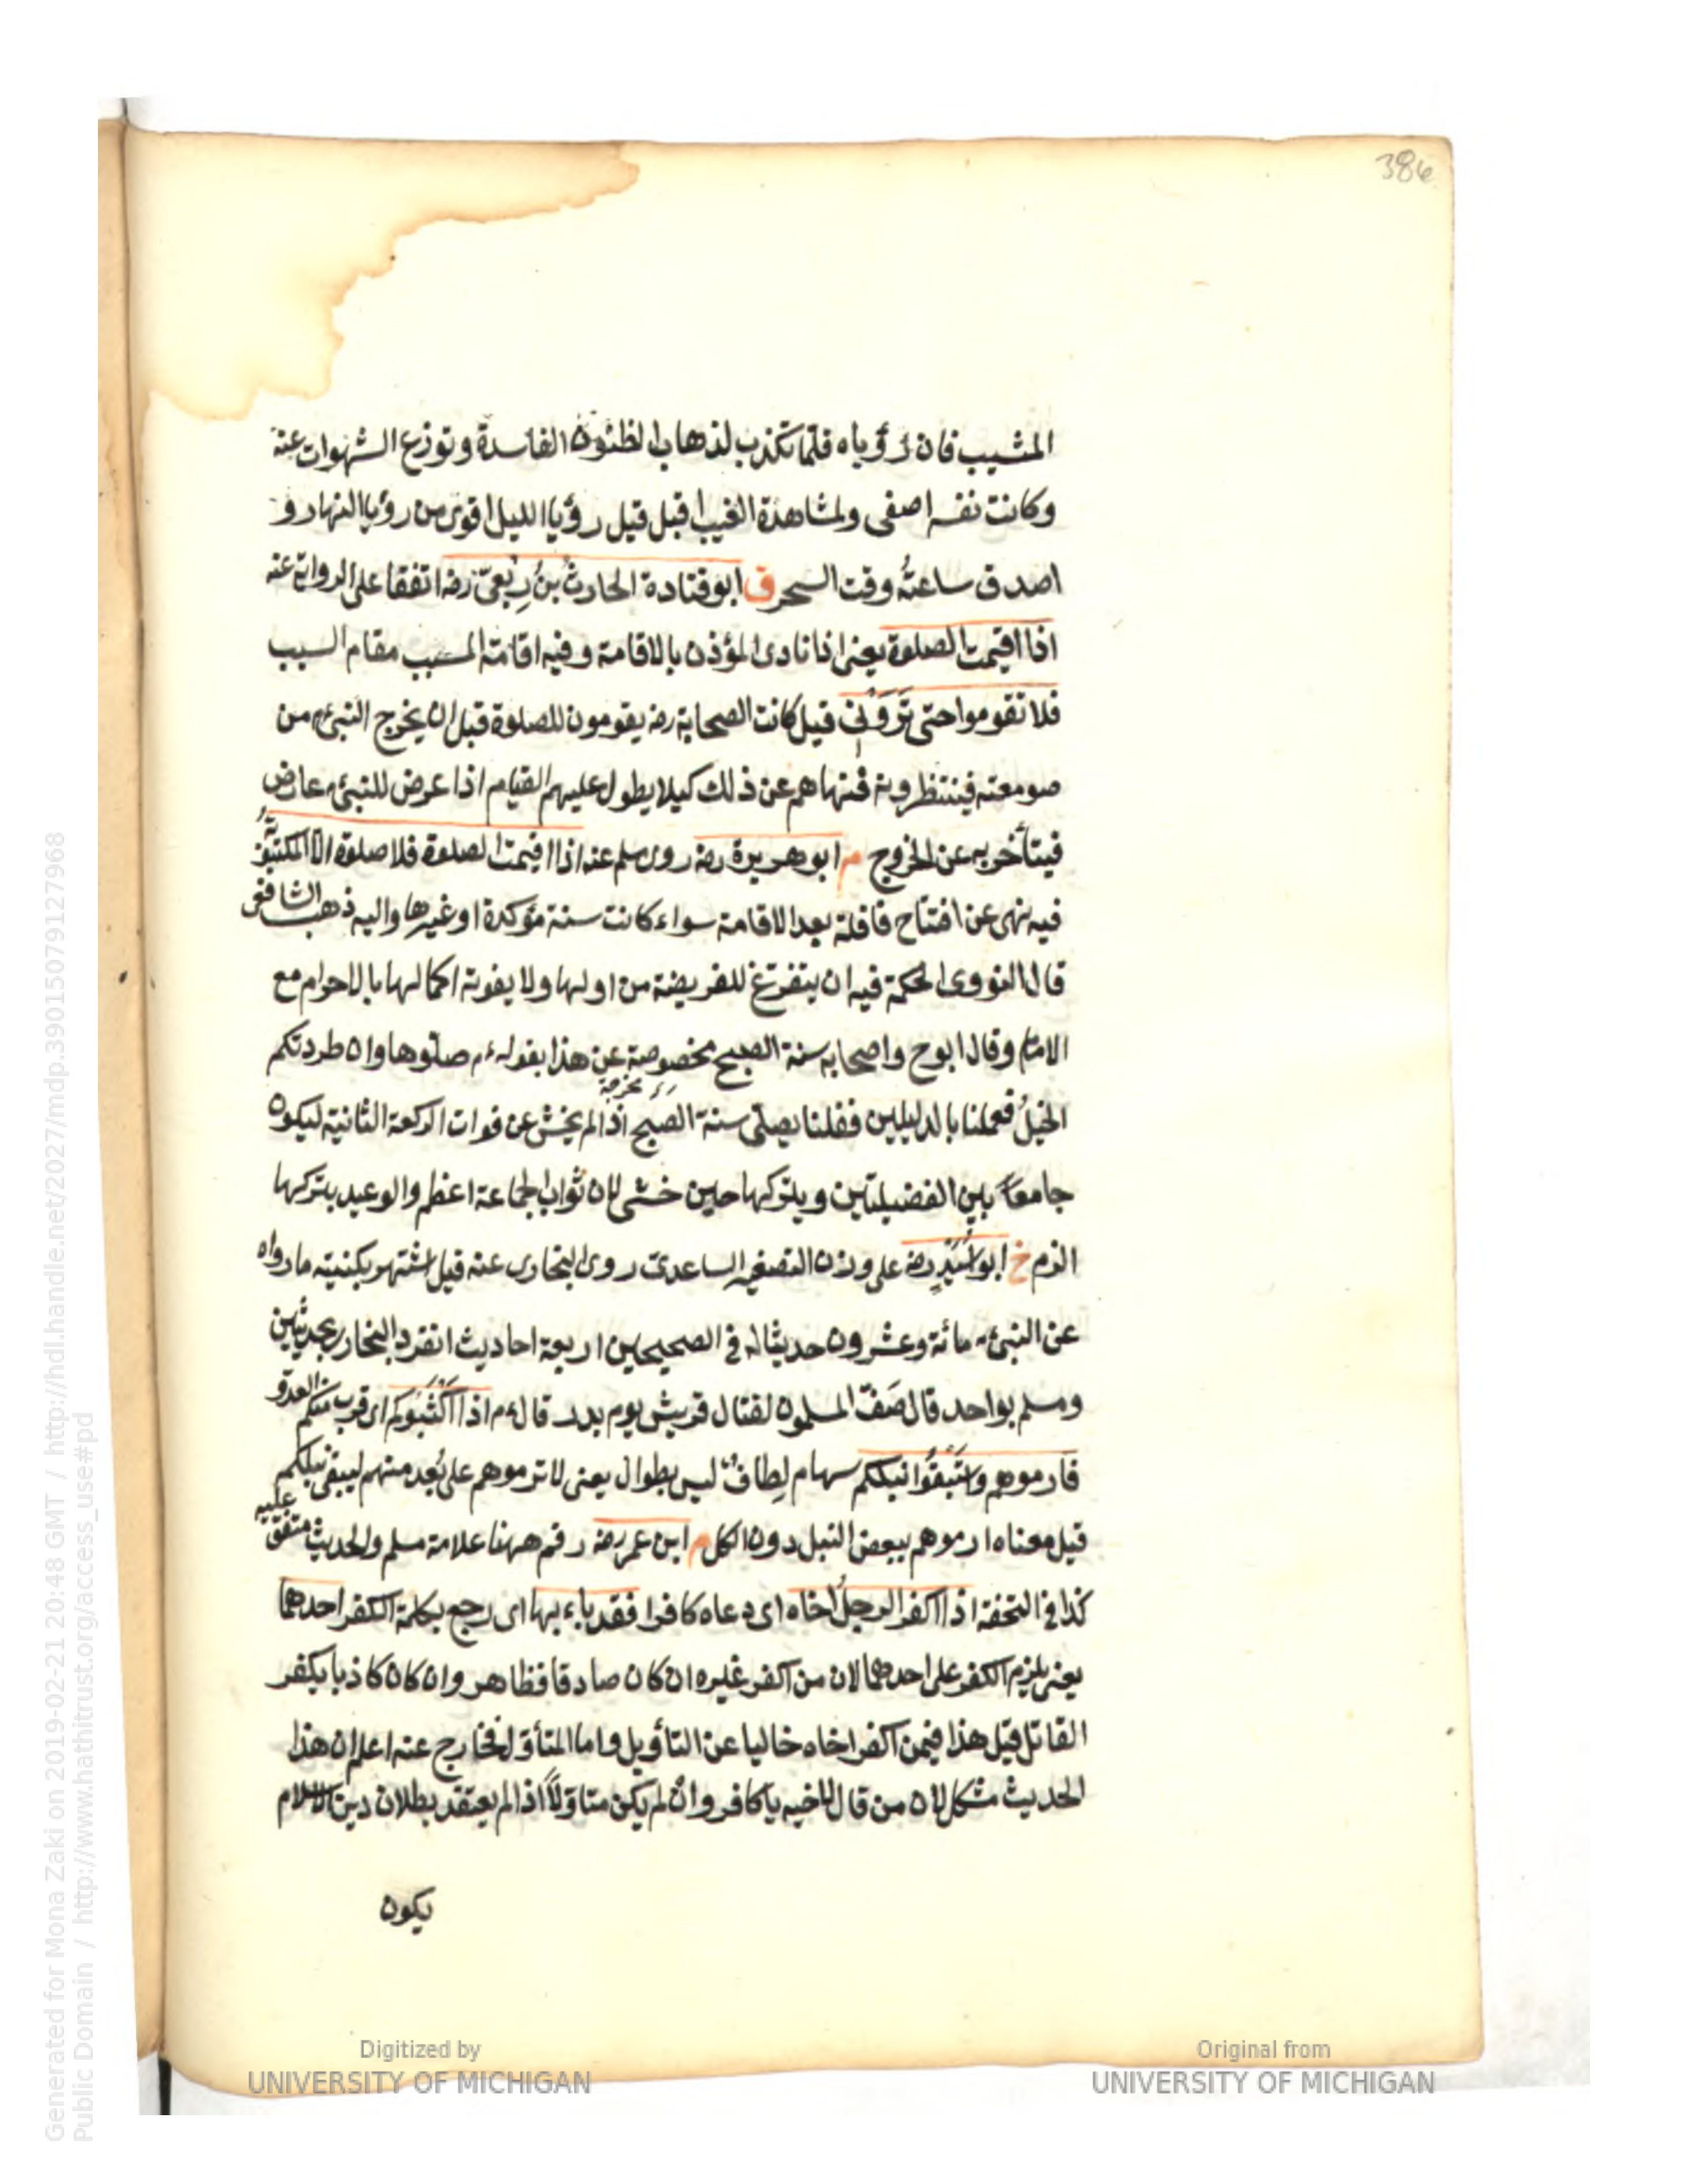 386
المشيب فان رؤياه قلما تكذب لذهاب الظنون الفاسدة وتوزع الشهوات عنه
وكانت نفسه اصفى ولمشاهدة الغيب اقبل قيل رؤيا الليل اقوى من رؤيا النهار و
اصدق ساعته وقت السحر ق ابو قتادة الحارث بن رِبْعىّ رضه اتفقا على الرواية عنه
اذا اقيمت الصلوة يعنى اذا نادى المؤذن بالاقامة وفيه اقامة المسبب مقام السبب
فلا تقوموا حتى تَرَوْنى قيل كانت الصحابة رضه يقومون للصلوة قبل ان يخرج النبىء م من
صومعته فينتظرونه فنهاهم عن ذلك كيلا يطول عليهم القيام اذا عرض للنبىء م عارض
فيتأخر به عن الخروج م ابو هريرة رضه روى مسلم عنه اذا اقيمت الصلوة فلا صلوة الا المكتوبةُ
فيه نهى عن افتتاح نافلة بعد الاقامة سواء كانت سنة مؤكدة او غيرها واليه ذهب الشافعى
قال النووى الحكمة فيه ان يتفرغ للفريضة من اولها ولا يفوته اكمالها بالاحرام مع
الامام وقال ابو ح واصحابه سنة الصبح مخصوصة عن هذا بقوله ء م صلّوها وان طردتكم
الخيلُ فعملنا بالدليلين فقلنا يصلى سنة الصبح اذا لم يخش عن فوات الركعة الثانية ليكون
جامعاً بين الفضيلتين ويتركها حين خشى لان ثواب الجماعة اعظم والوعيد بتركها
الزم خ ابو اُسَيْدٍ رضه على وزن التصغير الساعدىّ روى البخارى عنه قيل اشتهر بكنيته ما رواه
عن النبىء م مائة وعشرون حديثا له فى الصحيحين اربعة احاديث انفرد البخارى بحديثين
ومسلم بواحد قال صَفَّ المسلمون لقتال قريش يوم بدر قال ء م اذا اَكْثَبُوكم اى قرب منكم العدو
فارموهم واسْتَبْقُوا نبلكم سهام لِطافٌ ليس بطوال يعنى لا ترموهم على بُعد منهم ليبقى نبلكم
قيل معناه ارموهم ببعض النبل دون الكل م ابن عمر رضه رقم ههنا علامة مسلم والحديث متفق عليه
كذا فى التحفة اذا اكفر الرجلُ اخاه اى دعاه كافرا فقد باء بها اى رجع بكلمة الكفر احدهما
يعنى يلزم الكفر على احدهما لان من اكفر غيره ان كان صادقا فظاهر وان كان كاذبا يكفر
القائل قيل هذا فيمن اكفر اخاه خاليا عن التأويل واما المتأول فخارج عنه اعلم ان هذا
الحديث مشكل لان من قال لاخيه يا كافر وان لم يكن متاوّلاً اذا لم يعتقد بطلان دين الاسلام
يكون
Digitized by
UNIVERSITY OF MICHIGAN
Original from
UNIVERSITY OF MICHIGAN
Generated for Mona Zaki on 2019-02-21 20:48 GMT / http://hdl.handle.net/2027/mdp.39015079127968
Public Domain / http://www.hathitrust.org/access_use#pd